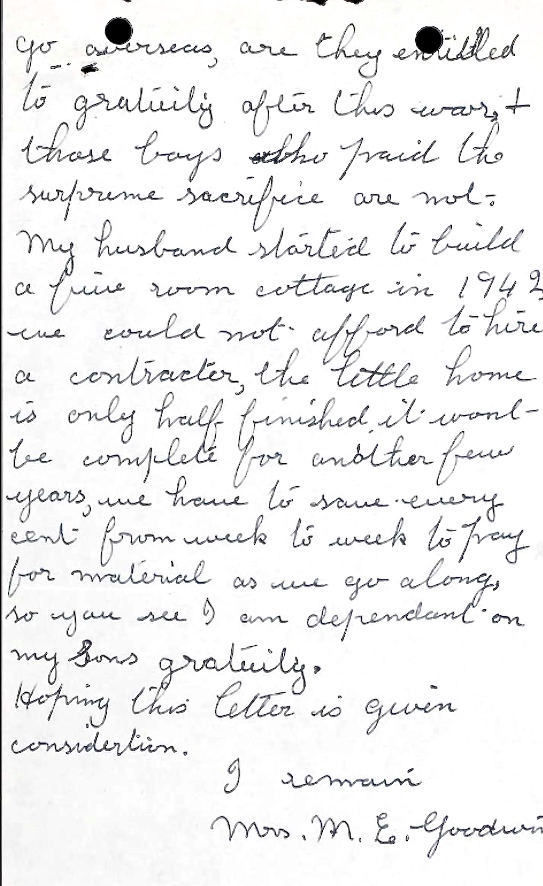 go overseas, are they entitled
to gratuity after this war, +
those boys who paid the
surpreme sacrifice are not.
My husband started to build
a five room cottage in 1942
we could not afford to hire
a contracter, the little home
is only half finished, it wont
be complete for another few
years, we have to save every
cent from week to week to pay
for material as we go along,
so you see I am dependant on
my Sons gratuity.
Hoping this letter is given
considertion.
I remain
Mrs. M. E. Goodwin